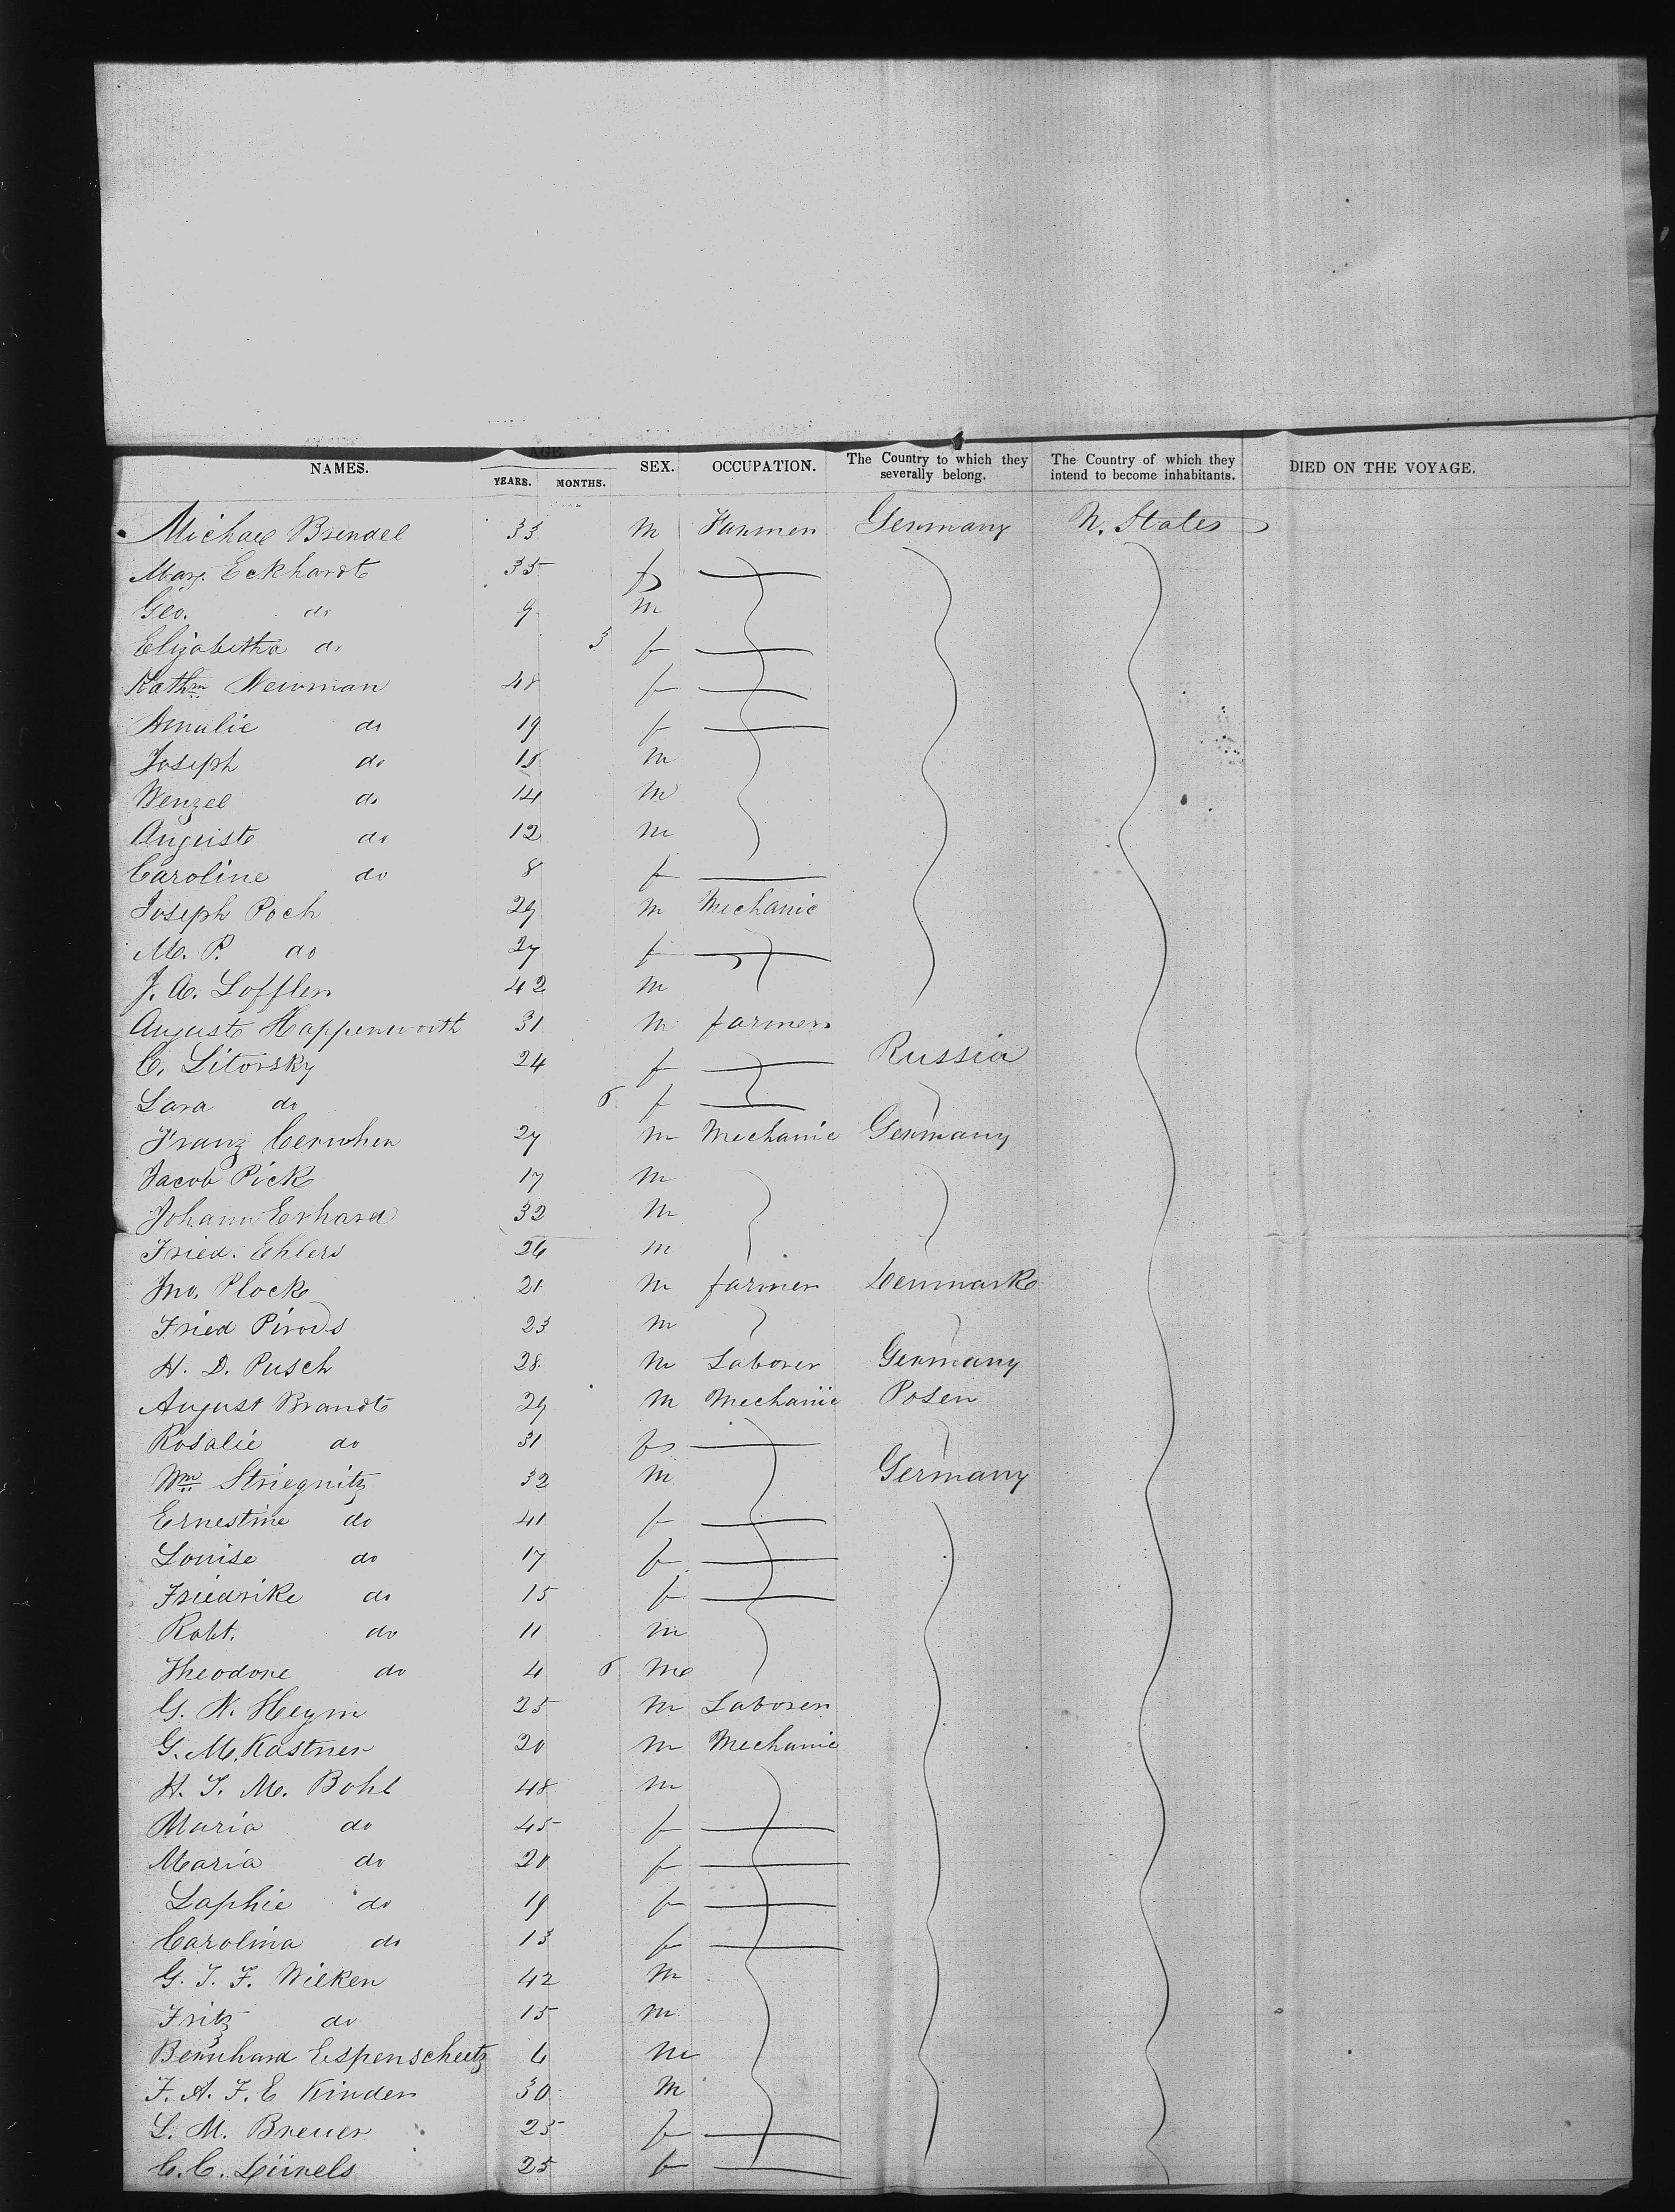 AGE.
NAMES. YEARS. MONTHS. SEX. OCCUPATION. The Country to which they severally belong. The Country of which they intend to become inhabitants. DIED ON THE VOYAGE.
Michael Brendel 33 m Farmer Germany U. States
Mary. Eckhardt 35 f
Geo. do 9 m
Elizabetha do 3 f
Kathn Newman 48 f
Amalie do 19 f
Joseph do 15 m
Wenzel do 14 m
Auguste do 12 m
Caroline do 8 f
Joseph Poch 29 m Mechanic
M. P. do 27 f
J. A. Loffler 42 m
Auguste Happenworth 31 m farmer
C. Litorsky 24 f Russia
Sara do 6 f
Franz Cerwhen 27 m Mechanic Germany
Jacob Pick 17 m
Johann Erhard 32 m
Fried. Ehlers 26 m
Jno. Plock 21 m farmer Denmark
Fried Pirods 23 m
H. D. Pusch 28 m Laborer Germany
August Brandt 29 m Mechanic Posen
Rosalie do 31 f
Wm Striegnitz 32 m Germany
Ernestine do 41 f
Louise do 17 f
Friedrike do 15 f
Robt. do 11 m
Theodore do 4 6 m
G. N. Heym 25 m Laborer
G. M. Kastner 20 m Mechanic
H. J. M. Bohl 48 m
Maria do 45 f
Maria do 20 f
Saphie do 19 f
Carolina do 13 f
G. J. F. Wilken 42 m
Fritz do 15 m
Bernhard Espenscheetz 6 m
F. A. F. E Kinder 30 m
L. M. Breuer 25 f
C. C. Lüirels 25 f